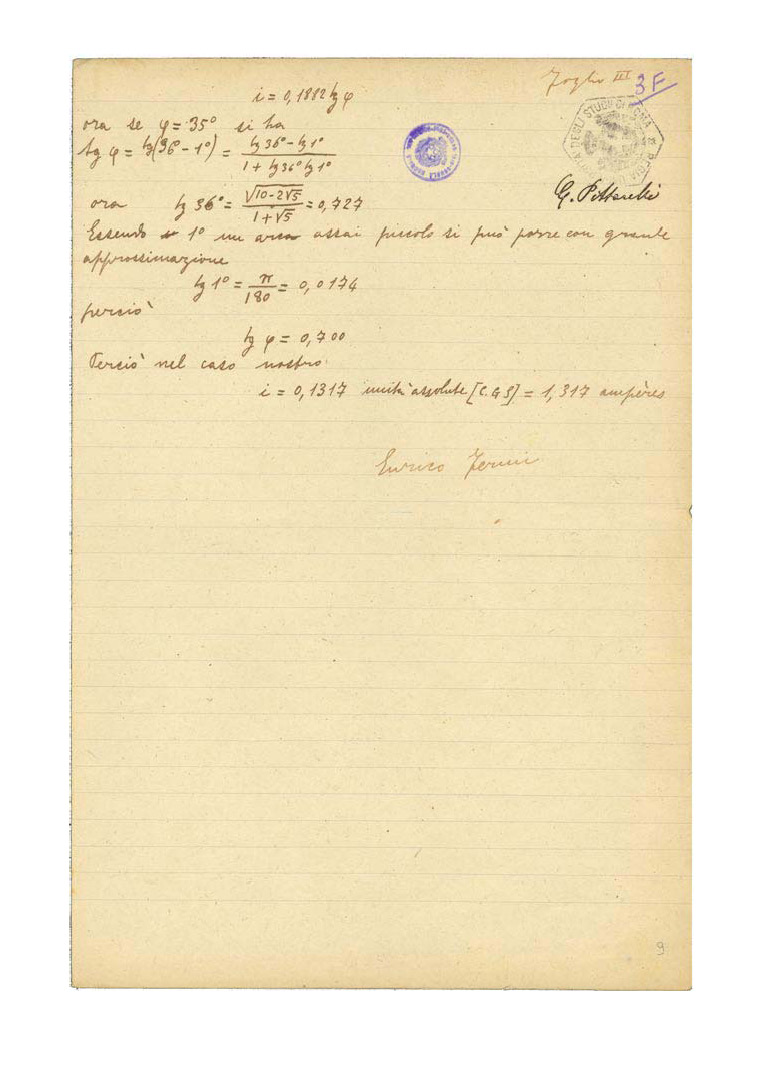 Foglio III 3F
i = 0,1882 tg φ
ora se φ = 35° si ha
tg φ = tg(36° - 1°) = (tg 36° - tg 1°) / (1 + tg 36° tg 1°)
G. Pittarelli
ora tg 36° = √(10-2√5) / (1+√5) = 0,727
Essendo 1° un arco assai piccolo si può porre con grande
approssimazione
tg 1° = π/180 = 0,0174
perciò
tg φ = 0,700
Perciò nel caso nostro
i = 0,1317 unità assolute [C.G.S] = 1,317 ampères
Enrico Fermi
9